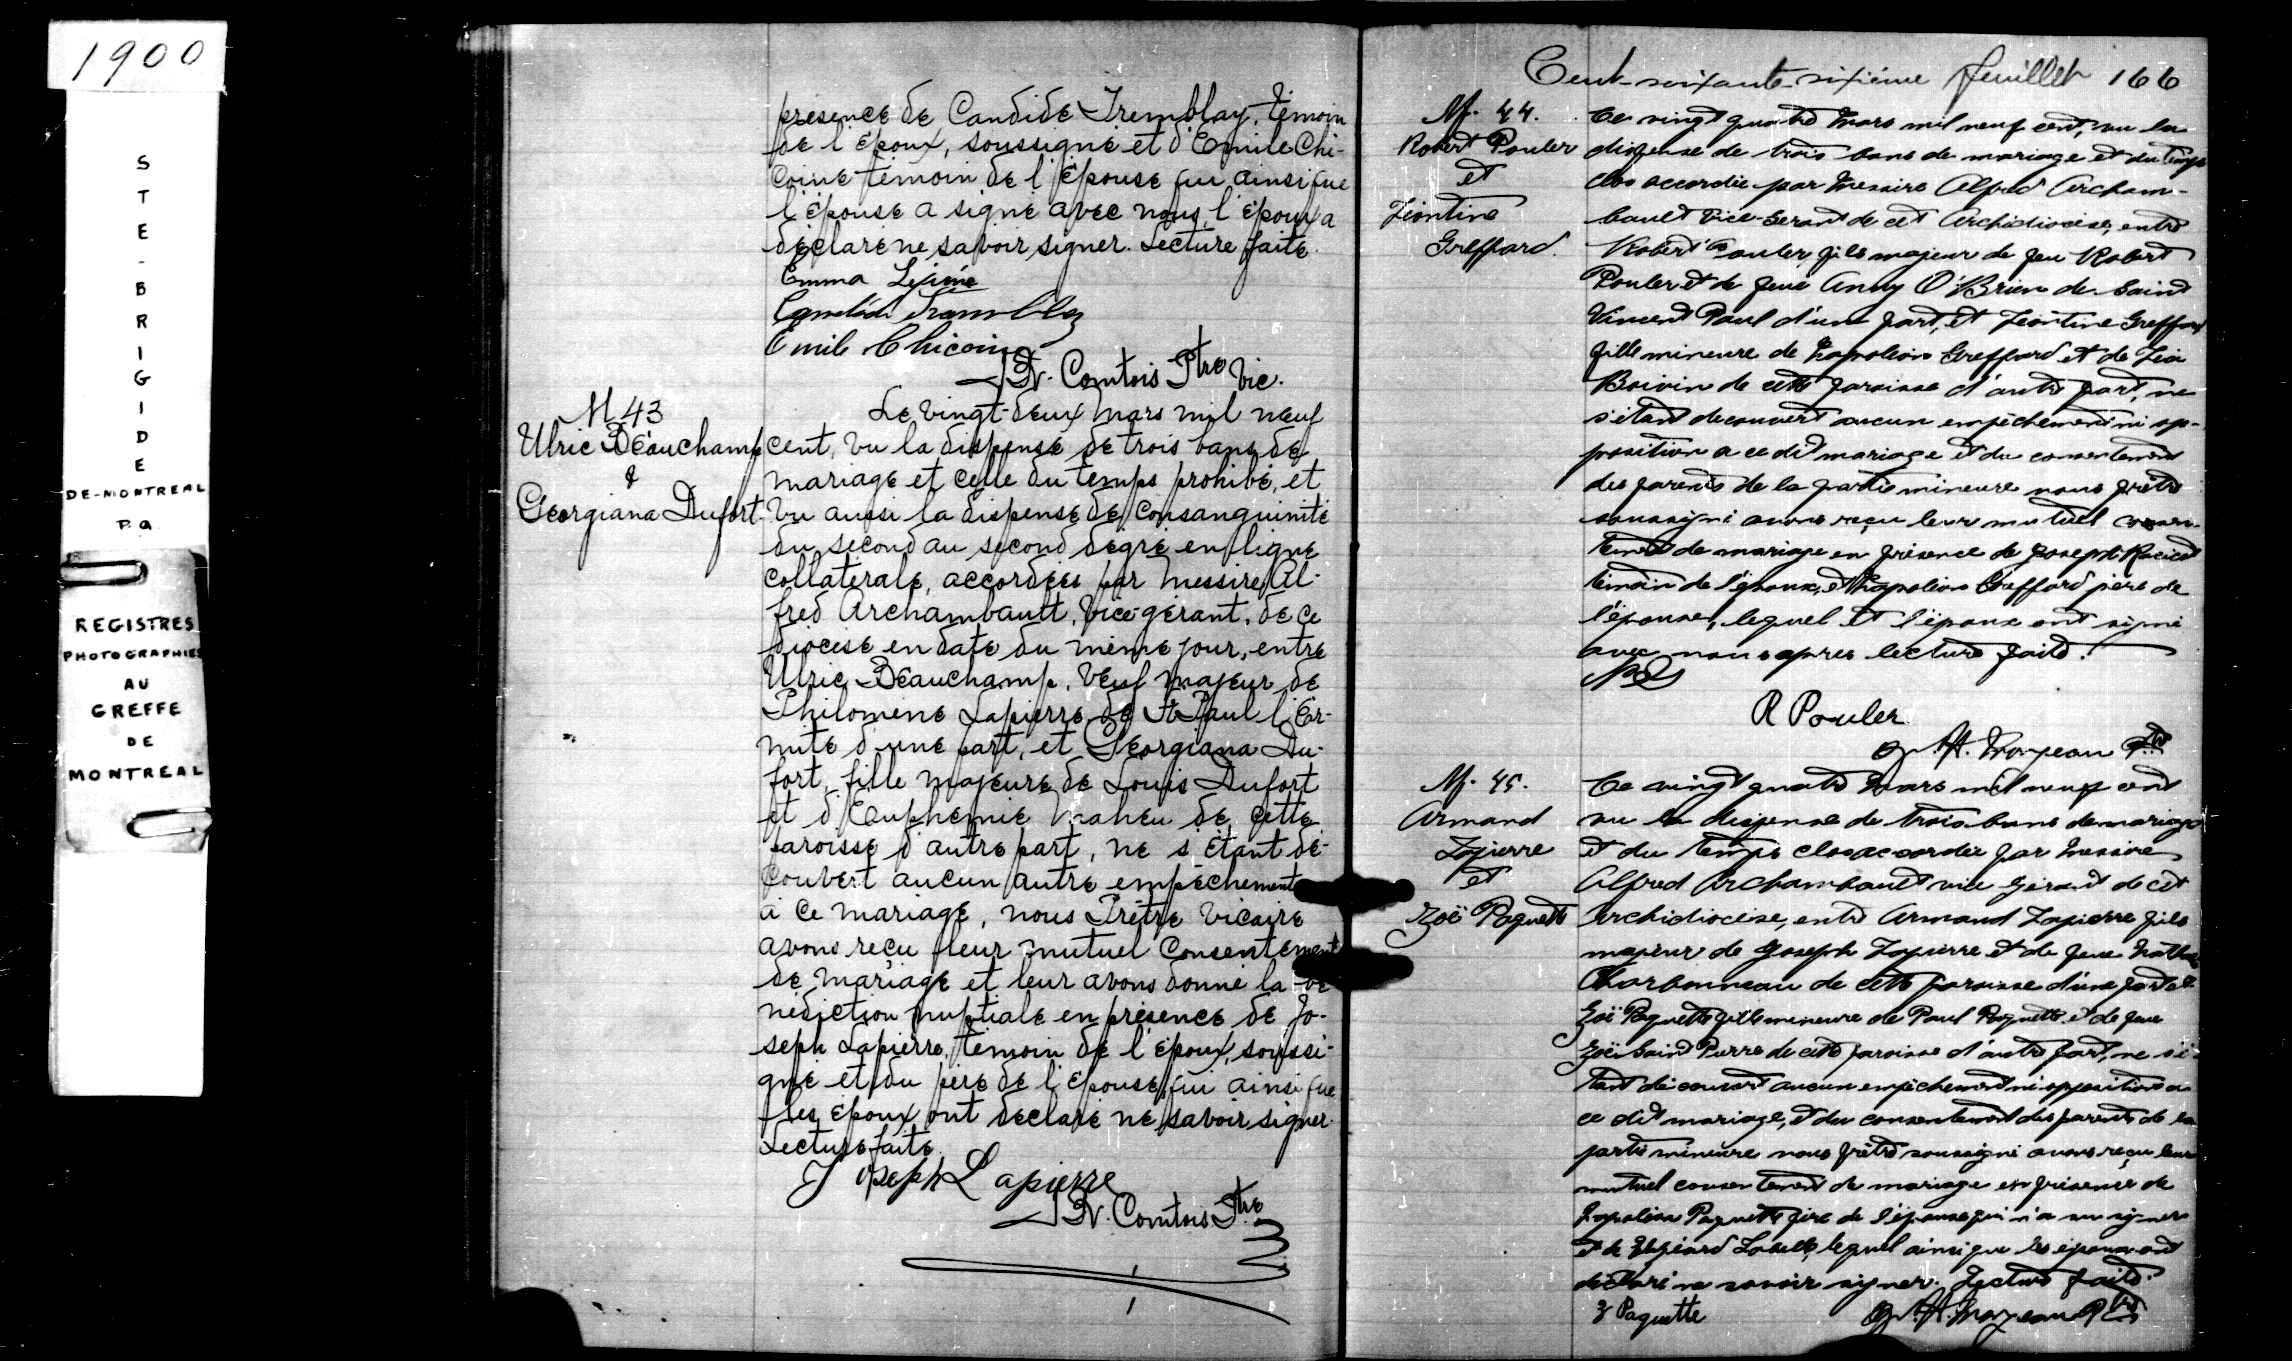 1900
STE-BRIGIDE
DE-MONTREAL
P.Q.
REGISTRES
PHOTOGRAPHIES
AU
GREFFE
DE
MONTREAL
présence de Candide Tremblay, témoin
de l'époux, soussigné et d'Emile Chi-
coine témoin de l'épouse qui ainsi que
l'épouse a signé avec nous, l'époux a
déclaré ne savoir signer. Lecture faite.
Emma
Emile Chicoine
N. Comtois Ptre Vic.
M 43
Ulric Beauchamp
&
Georgiana Dufort
Le vingt-deux Mars mil neuf
cent, vu la dispense de trois bans de
mariage et celle du temps prohibé, et
vu aussi la dispense de consanguinité
du second au second degré en ligne
collatérale, accordées par Messire Al-
fred Archambault, Vice-gérant, de ce
diocèse en date du même jour, entre
Ulric Beauchamp, veuf majeur de
Philomène Lapierre de St Paul l'Er-
mite d'une part, et Georgiana Du-
fort, fille majeure de Louis Dufort
et d'Euphémie Maheu de cette
paroisse d'autre part, ne s'étant dé-
couvert aucun autre empêchement
à ce mariage, nous Prêtre Vicaire
avons reçu leur mutuel consentement
de mariage et leur avons donné la bé
nédiction nuptiale en présence de Jo-
seph Lapierre, témoin de l'époux, soussi-
gné et du père de l'épouse, qui ainsi que
les époux ont déclaré ne savoir signer.
Lecture faite.
Joseph Lapierre
N. Comtois Ptre
Cent-soixante-sixième feuillet 166
M. 44.
Robert Pouler
et
Léontine
Greffard.
Ce vingt quatre Mars mil neuf cent, vu la
dispense de trois bans de mariage et du temps
clos accordée par Messire Alfred Archam-
bault Vice-Gérant de cet Archidiocèse, entre
Robert Pouler, fils majeur de feu Robert
Pouler et de feue Anny O'Brien de Saint
Vincent Paul d'une part, et Léontine Greffard
fille mineure de Napoléon Greffard et de Léa
Boivin de cette paroisse d'autre part, ne
s'étant découvert aucun empêchement ni op-
position a ce dit mariage et du consentement
des parents de la partie mineure nous prêtre
soussigné avons reçu leur mutuel consen-
tement de mariage en présence de Joseph Racicot
témoin de l'époux, et Napoléon Greffard père de
l'épouse, lequel et l'époux ont signé
avec nous apres lecture faite.
R Pouler
M. 45.
Armand
Lapierre
et
Zoé Paquette
Ce vingt quatre Mars mil neuf cent
vu la dispense de trois bans de mariage
et du temps clos accordée par Messire
Alfred Archambault vice Gérant de cet
Archidiocèse, entre Armand Lapierre fils
majeur de Joseph Lapierre et de feue
Charbonneau de cette paroisse d'une part et
Zoé Paquette fille mineure de Paul Paquette et de feue
Zoé Saint Pierre de cette paroisse d'autre part, ne s'é
tant découvert aucun empêchement ni opposition a
ce dit mariage, et du consentement des parents de la
partie mineure nous prêtre soussigné avons reçu leur
mutuel consentement de mariage en présence de
Napoléon Paquette père de l'épouse qui n'a su signer
et de Labelle, lequel ainsi que les époux ont
déclaré ne savoir signer. Lecture faite.
Z Paquette